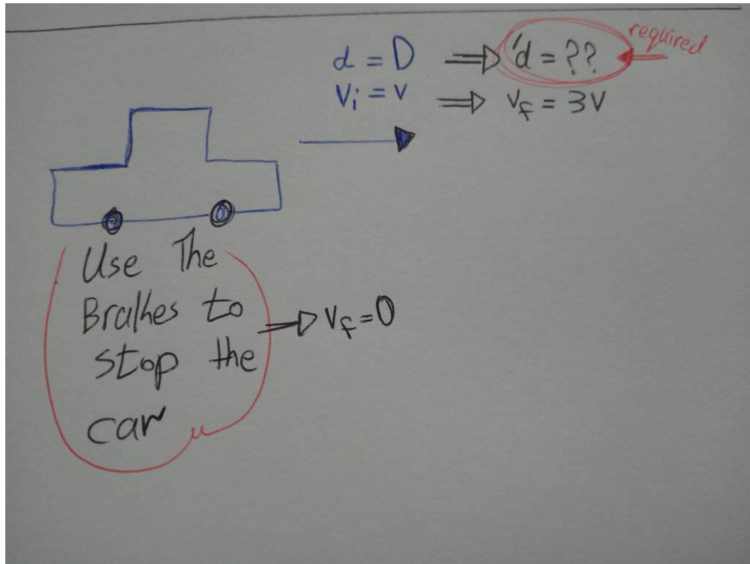 d = D ⇒ 'd = ??
required
Vi = v ⇒ Vf = 3V
Use The
Brakhes to
stop the
car
⇒ Vf = 0